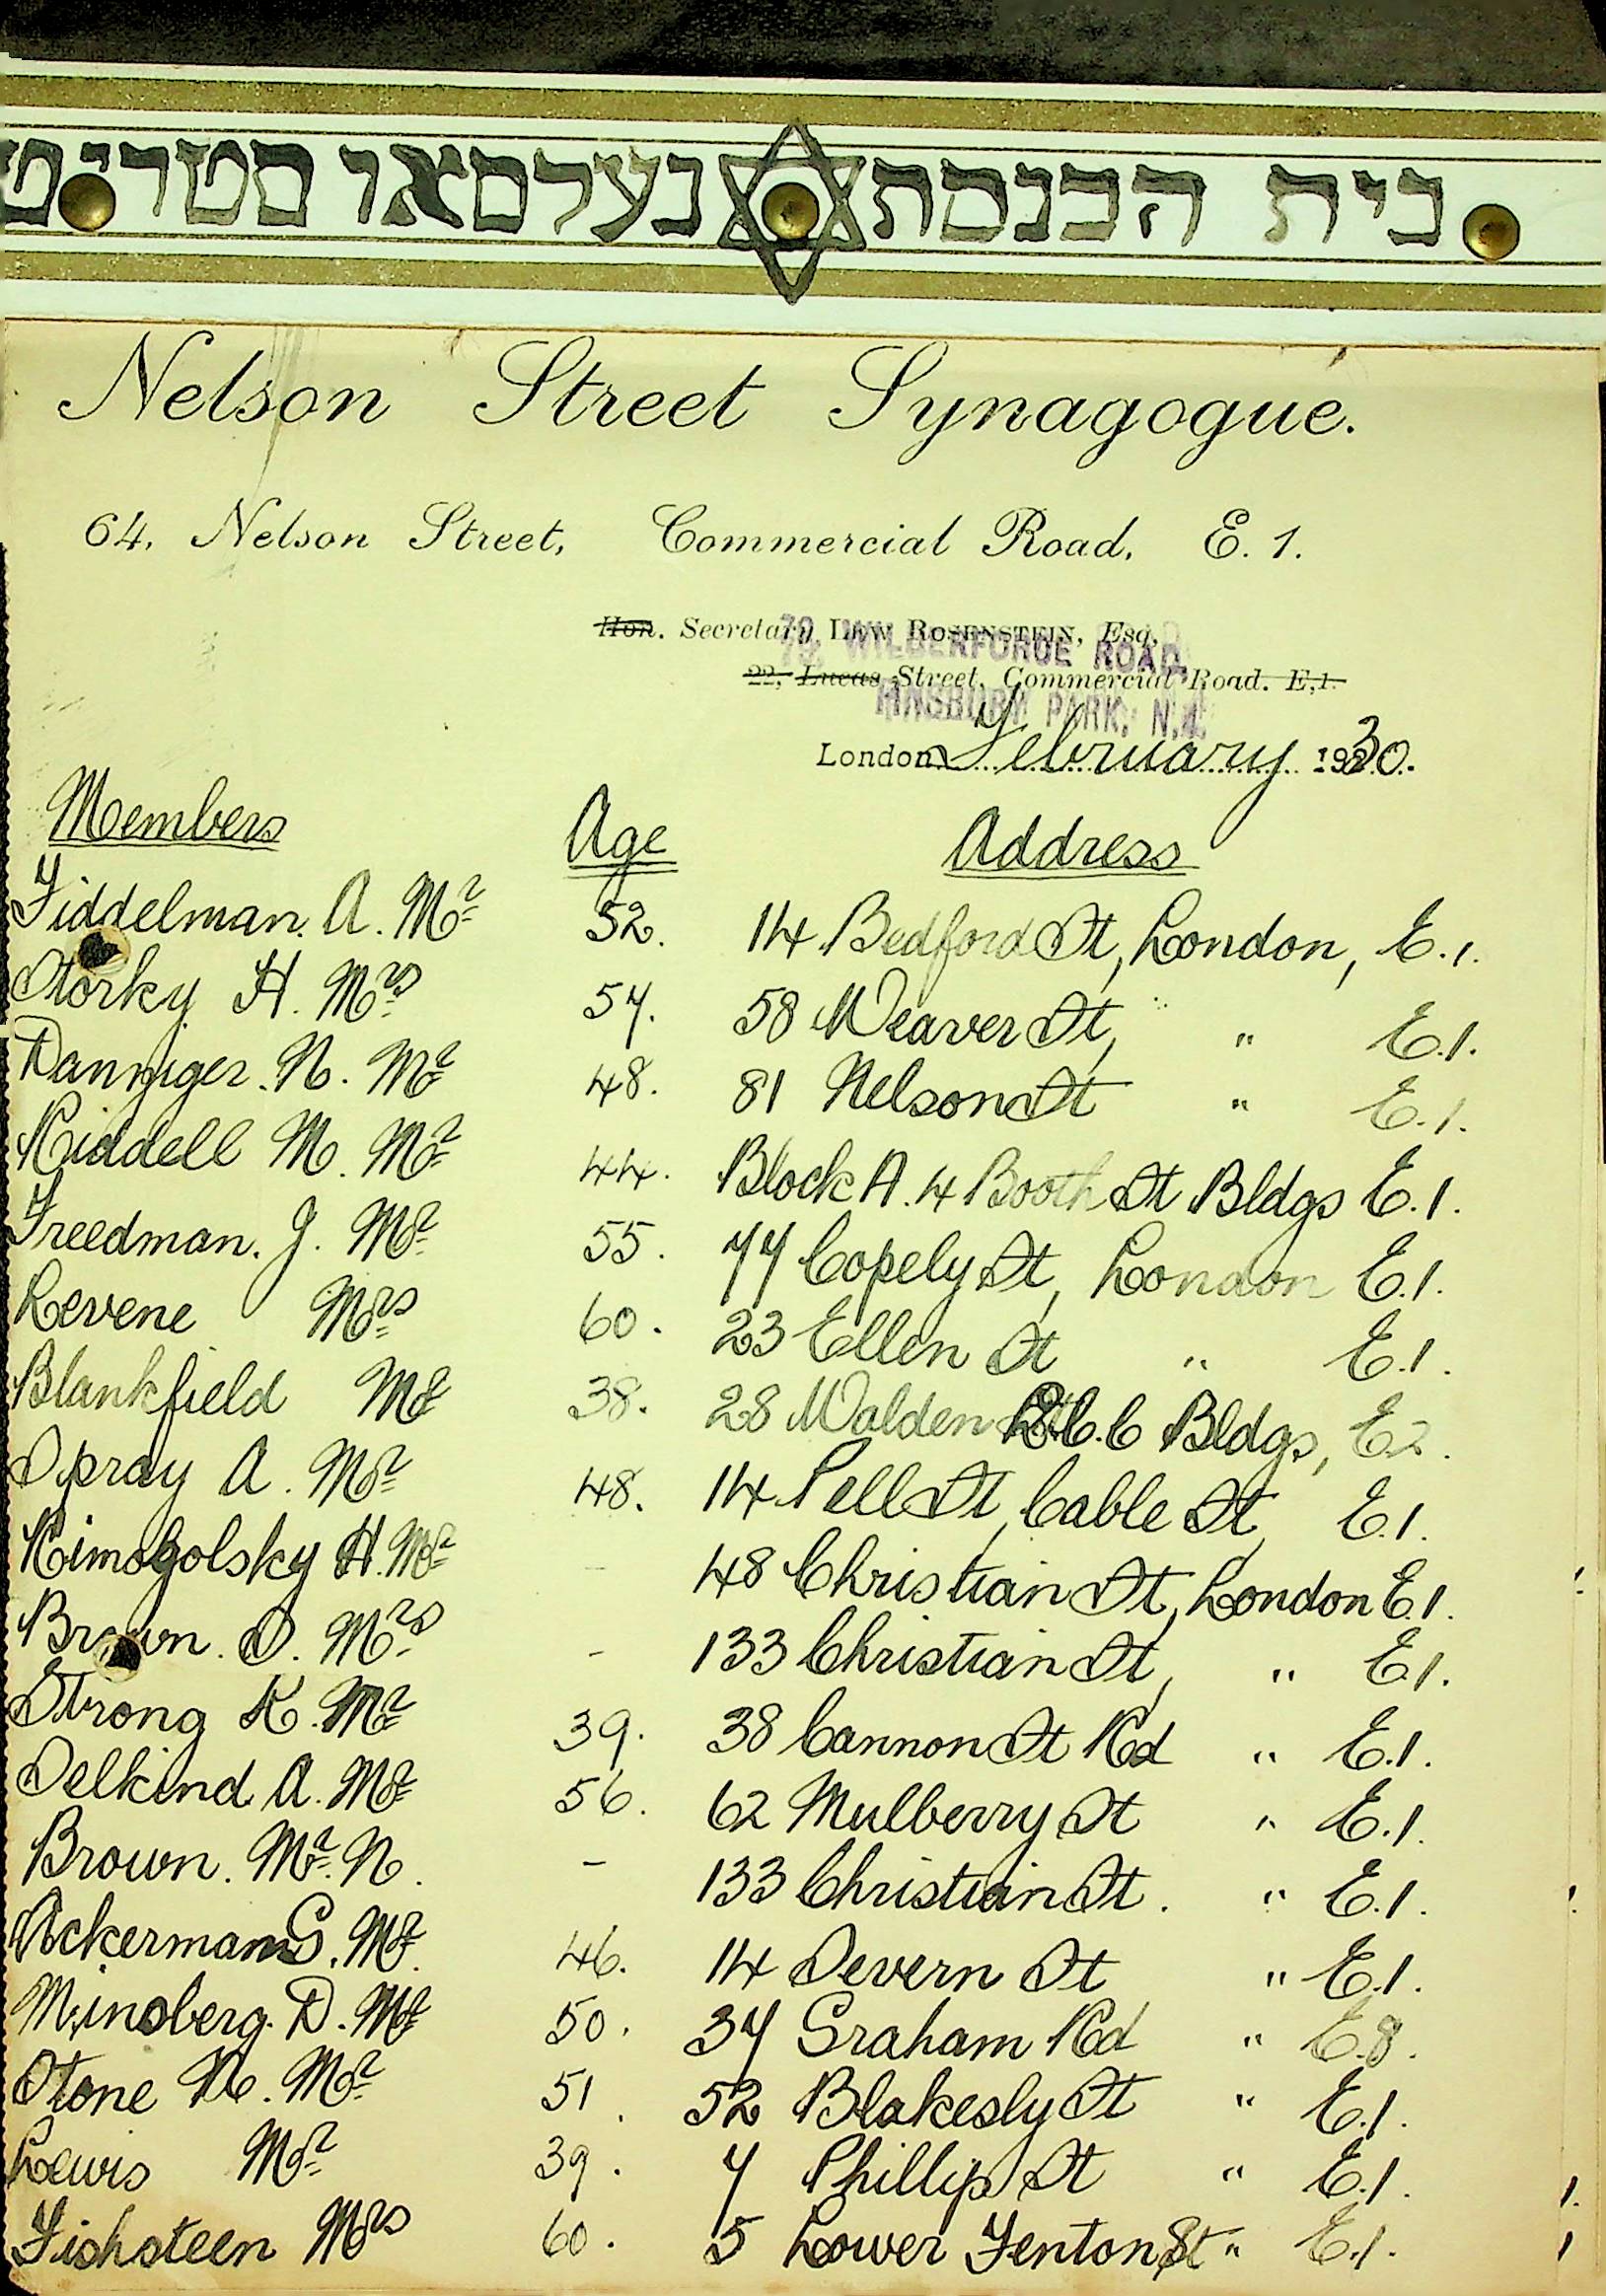 בית הכנסת נעלסאן סטריט
Nelson Street Synagogue.
64, Nelson Street, Commercial Road, E. 1.
Hon. Secretary LEW ROSENSTEIN, Esq.
79, WILBERFORCE ROAD,
22, Lucas Street, Commercial Road. E,1.
FINSBURY PARK, N.4.
London February 1930.
Members Age Address
Fiddelman. A. Mr 52. 14 Bedford St, London, E.1.
Storky H. Mrs 57. 58 Weaver St, " E.1.
Danziger. N. Mr 48. 81 Nelson St " E.1.
Riddell M. Mr 44. Block A. 4 Booth St Bldgs E.1.
Freedman. J. Mr 55. 77 Copely St, London E.1.
Levene Mrs 60. 23 Ellen St " E.1.
Blankfield Mr 38. 28 Walden L.C.C Bldgs, E2.
Spray A. Mr 48. 14 Pell St, Cable St, E.1.
Rimogolsky H. Mr - 48 Christian St, London E.1.
Brown. S. Mrs - 133 Christian St, " E.1.
Strong K. Mr 39. 38 Cannon St Rd " E.1.
Selkind A. Mr 56. 62 Mulberry St " E.1.
Brown. Mr. N. - 133 Christian St. " E.1.
Ackerman S. Mr. 46. 14 Severn St " E.1.
Minsberg. D. Mr 50. 37 Graham Rd " E.8.
Stone N. Mr 51. 52 Blakesly St " E.1.
Lewis Mr 39. 7 Phillip St " E.1.
Fishsteen Mrs 60. 5 Lower Fenton St " E.1.